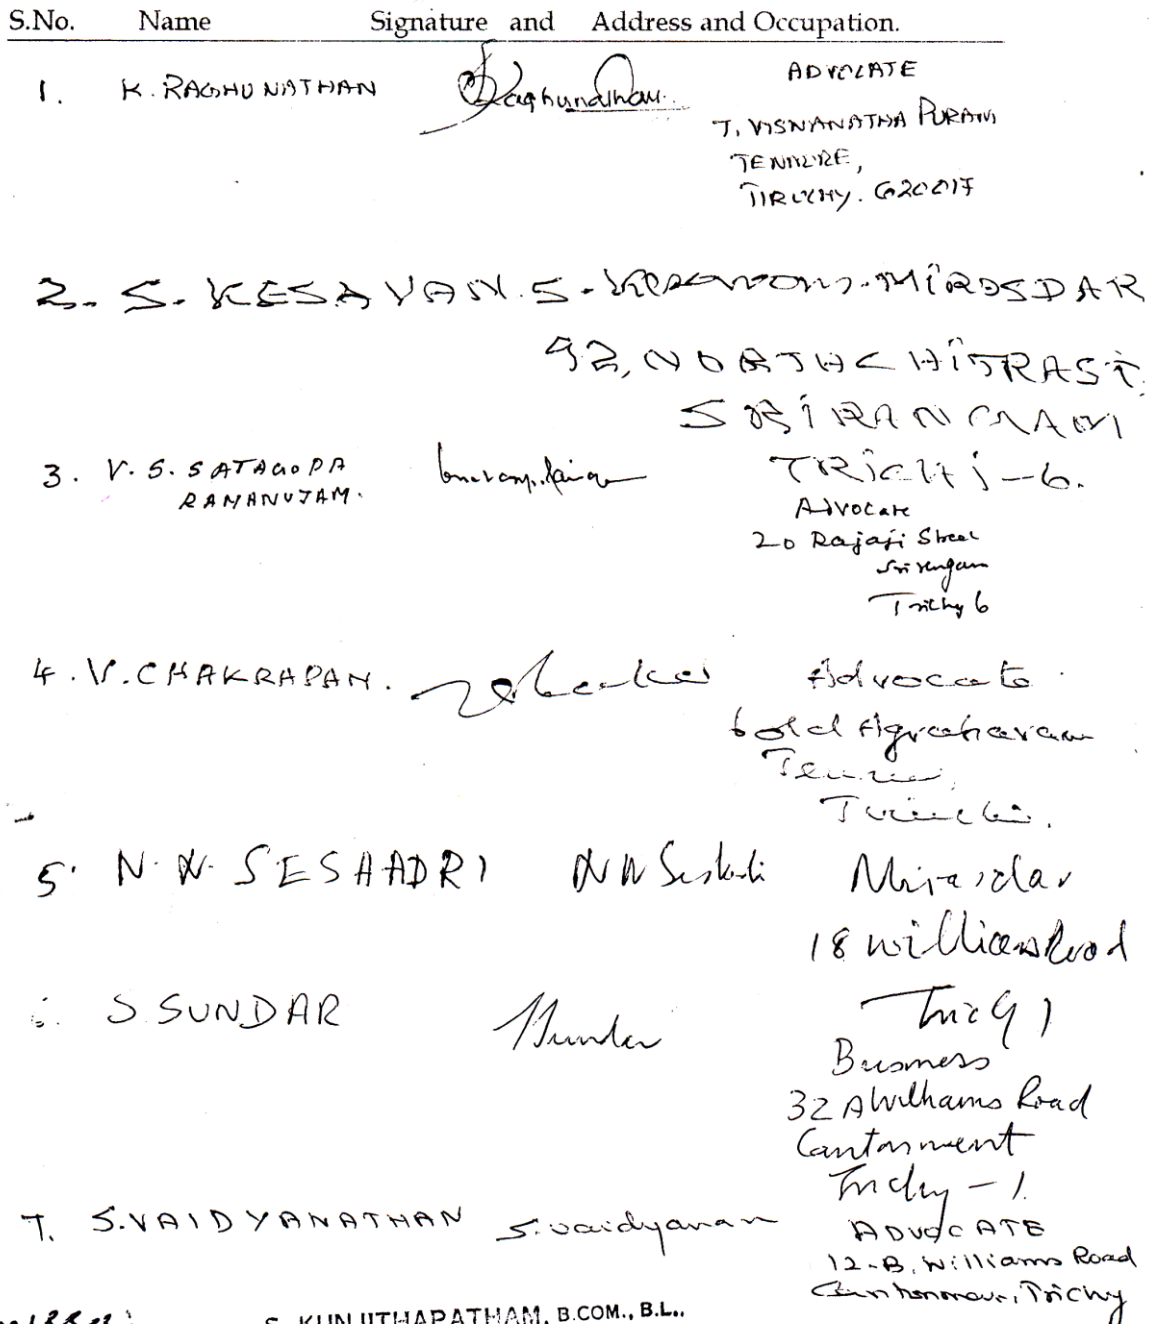 S.No. Name Signature and Address and Occupation.
1. K. RAGHUNATHAN Raghunathan ADVOCATE
T. VISNANATHA PURAM
TENNURE,
TIRUCHY. 620017
2. S. KESAVAN. S. Kesavan. MIRASDAR
92, NORTH CHITRA ST.
SRIRANGAM
TRICHI-6.
3. V. S. SATAGOPA
RAMANUJAM.
Advocate
20 Rajaji Street
Srirengam
Trichy 6
4. V. CHAKRAPANI. Advocate
6 old Agraharam
Tennur,
Trichi.
5. N. N. SESHADRI N N Seshadri Mirasdar
18 Williams Road
Trichy 1
S. SUNDAR SSundar
Business
32 A Williams Road
Cantonment
Trichy - 1.
7. S. VAIDYANATHAN S. Vaidyanathan ADVOCATE
12-B, Williams Road
Cantonment, Trichy
S. KUNJITHAPATHAM, B.COM., B.L.,